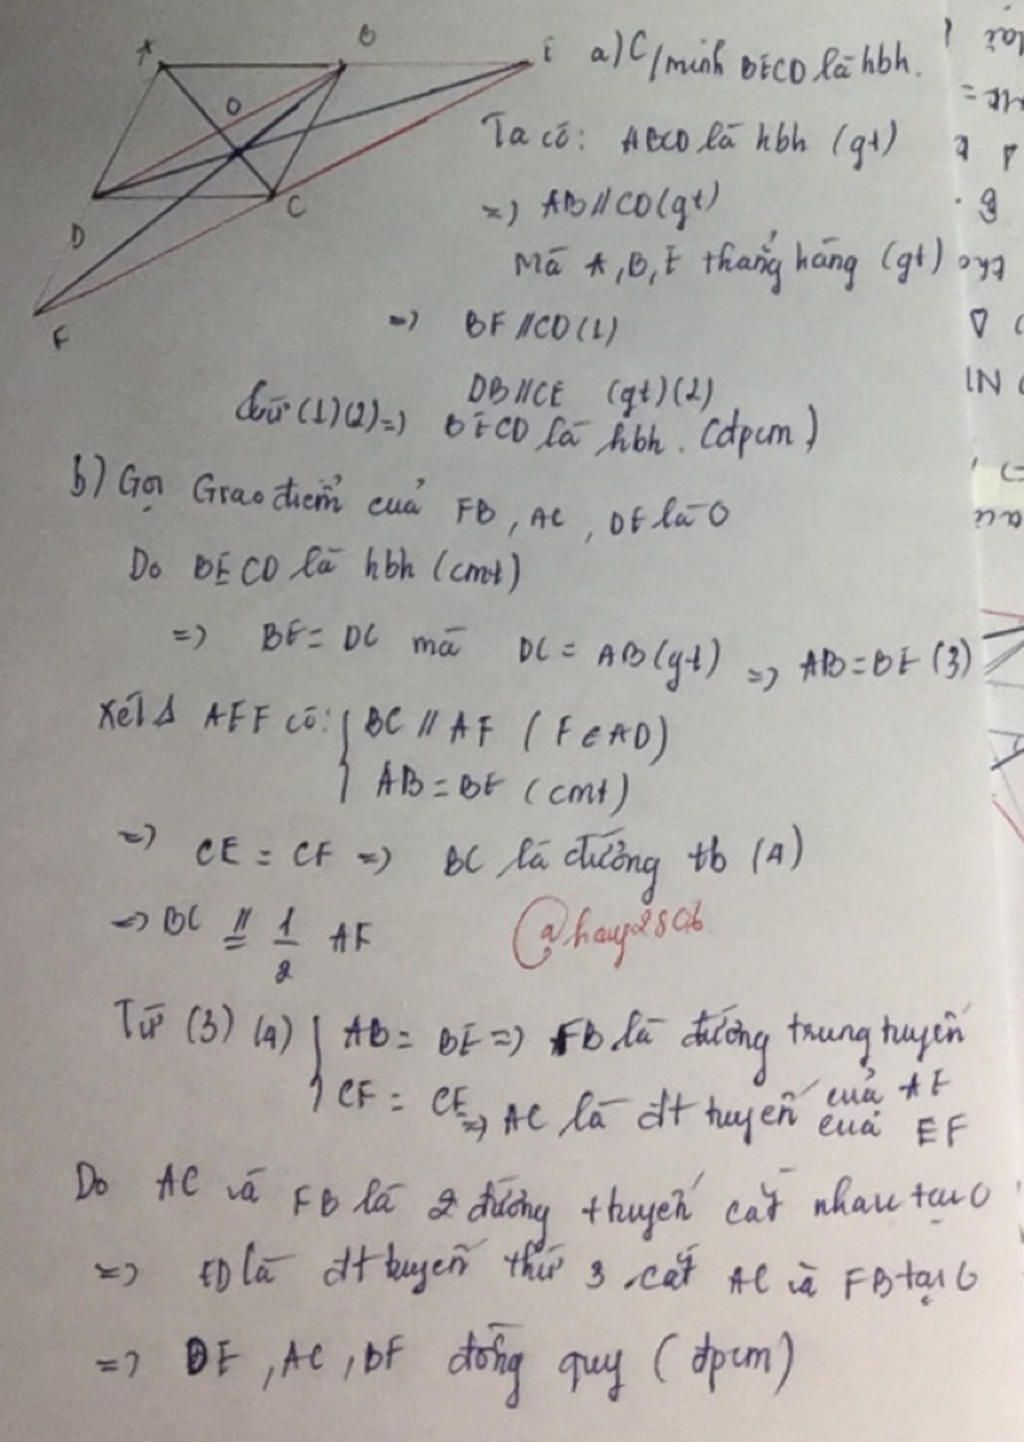 A B E a) C/minh BECD là hbh.
O
Ta có: ABCD là hbh (gt)
=> AB // CD (gt)
D C
Mà A, B, E thẳng hàng (gt)
F
=> BF // CD (1)
DB // CE (gt) (2)
Từ (1) (2) => BECD là hbh. (đpcm)
b) Gọi Giao điểm của FB, AC, DE là O
Do BECD là hbh (cmt)
=> BE = DC mà DC = AB (gt) => AB = BE (3)
Xét Δ AEF có: { BC // AF (F ∈ AD)
AB = BE (cmt)
=> CE = CF => BC là đường tb (4)
=> BC // = 1/2 AF
@hany2806
Từ (3) (4) { AB = BE => FB là đường trung tuyến của AE
CF = CE => AC là đt tuyến của EF
Do AC và FB là 2 đường t tuyến cắt nhau tại O
=> ED là đt tuyến thứ 3 cắt AC và FB tại O
=> DE, AC, BF đồng quy (đpcm)